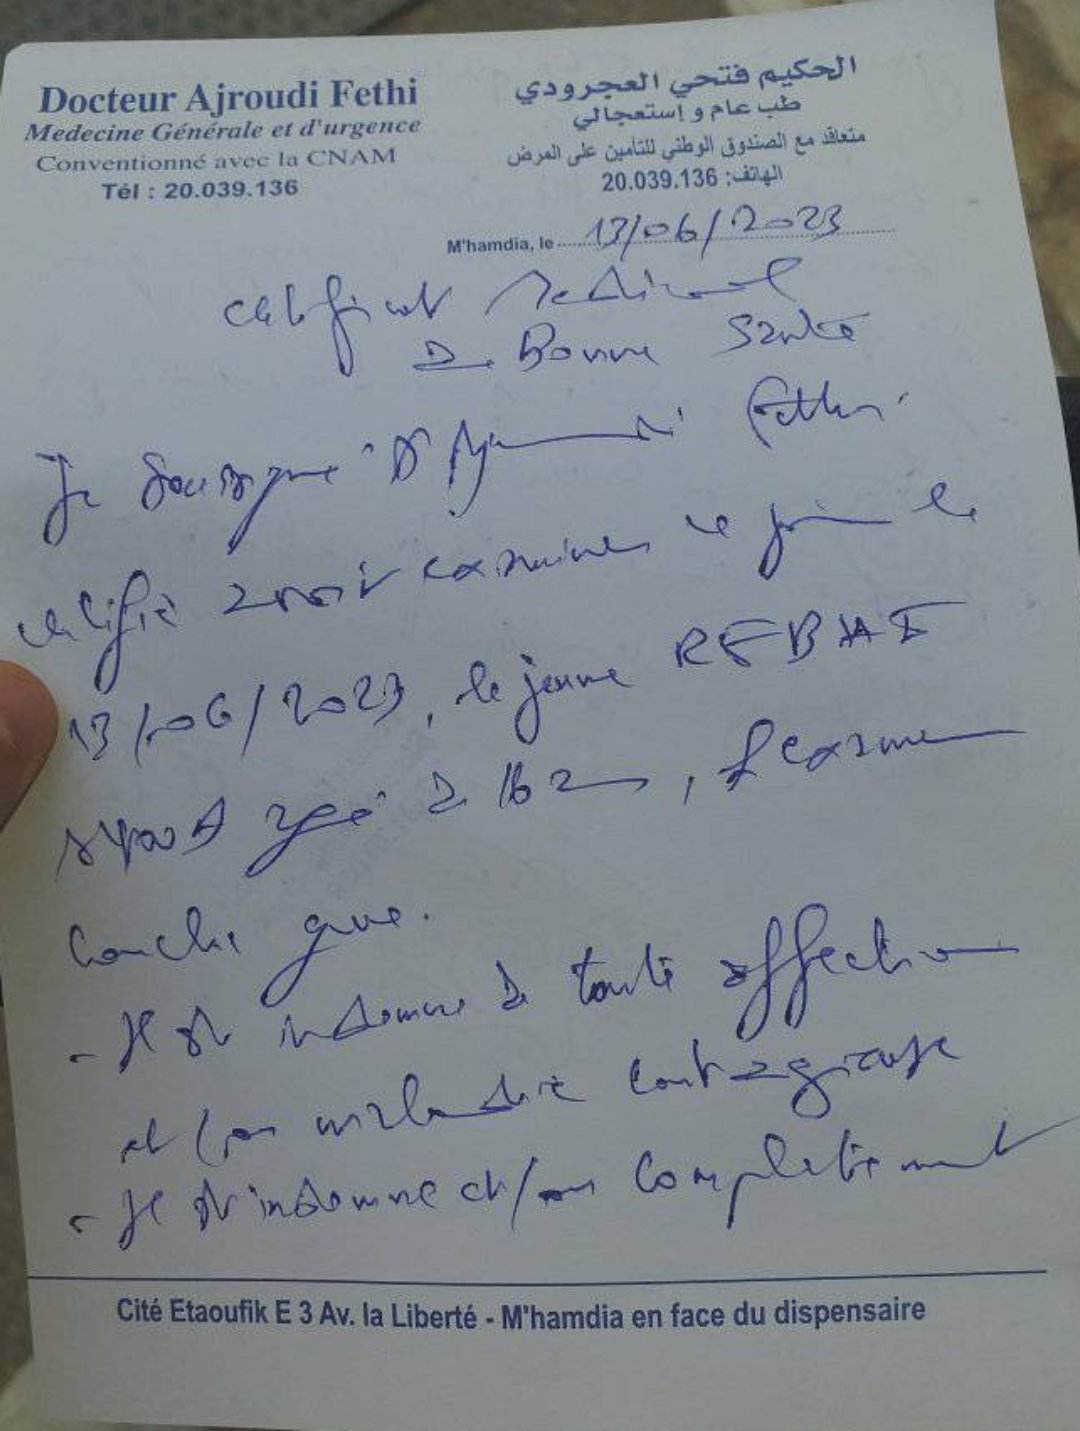 Docteur Ajroudi Fethi
Medecine Générale et d'urgence
Conventionné avec la CNAM
Tél : 20.039.136
الحكيم فتحي العجرودي
طب عام و إستعجالي
متعاقد مع الصندوق الوطني للتأمين على المرض
الهاتف: 20.039.136
M'hamdia, le 13/06/2023
Certificat Medical
De Bonne Santé
Je soussigné Dr Ajroudi Fethi
certifie avoir examiné ce jour le
13/06/2023, le jeune REBHI
agé de 16 ans, l'examen
conclu que.
- Il est indemne de toute affection
et/ou maladie contagieuse
- Il est indemne et/ou complètement
Cité Etaoufik E 3 Av. la Liberté - M'hamdia en face du dispensaire